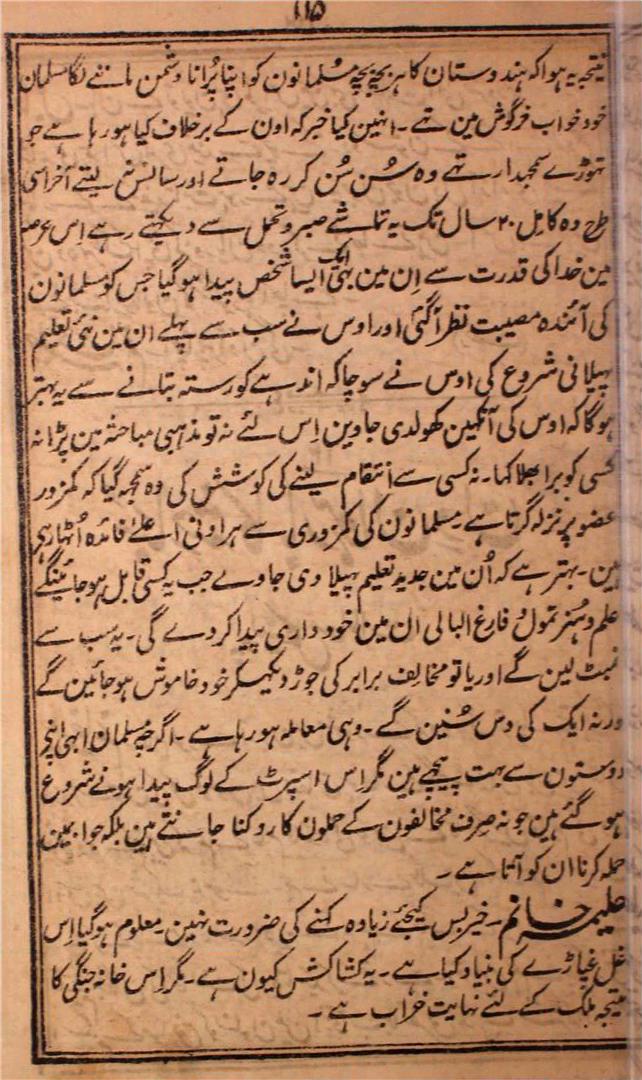 ۱۱۵
نتیجہ یہ ہوا کہ ہندوستان کا ہر بچہ بچہ مسلمانون کو اپنا پرانا دشمن ماننے لگا مسلمان
خود خواب خرگوش مین تہے ۔ انہین کیا خبر کہ اون کے برخلاف کیا ہو رہا ہے جو
تہوڑے سمجہدار تہے وہ سُن سُن کر رہ جاتے اور سانس نہ لیتے آخر اسی
طرح وہ کامل ۲۰ سال تک یہ تماشے صبر و تحمل سے دیکہتے رہے اِس عرصہ
مین خدا کی قدرت سے اِن مین ہی ایک ایسا شخص پیدا ہو گیا جس کو مسلمانون
کی آئندہ مصیبت نظر آ گئی اور اوس نے سب سے پہلے ان مین نئی تعلیم
پہیلانی شروع کی اوس نے سوچا کہ اندہے کو رستہ بتانے سے یہ بہتر
ہوگا کہ اوس کی آنکہین کھولدی جاوین اِس لئے نہ تو مذہبی مباحثہ مین پڑا نہ
کسی کو برا بھلا کہا ۔ نہ کسی سے انتقام لینے کی کوشش کی وہ سمجہہ گیا کہ کمزور
عضو پر نزلہ گرتا ہے ۔ مسلمانون کی کمزوری سے ہر ادنی اعلےٰ فائدہ اُٹہا رہی
ہین ۔ بہتر ہے کہ اُن مین جدید تعلیم پہیلا دی جاوے جب یہ کسی قابل ہو جائینگے
علم و ہنر تمول و فارغ البالی ان مین خود داری پیدا کر دے گی ۔ یہ سب سے
نمبٹ لین گے اور یا تو مخالف برابر کی جوڑ دیکہکر خود خاموش ہو جائین گے
ورنہ ایک کی دس سُنین گے ۔ وہی معاملہ ہو رہا ہے ۔ اگرچہ مسلمان ابہی اپنے
دوستون سے بہت پیچہے ہین مگر اِس اسپرٹ کے لوگ پیدا ہونے شروع
ہو گئے ہین جو نہ صِرف مخالفون کے حملون کا روکنا جانتے ہین بلکہ جواب مین
حملہ کرنا ان کو آتا ہے ۔
حلیمہ خانم ۔ خیر بس کیجئے زیادہ کہنے کی ضرورت نہین ۔ معلوم ہو گیا اِس
غل غپاڑے کی بنیاد کیا ہے ۔ یہ کشاکش کیون ہے ۔ مگر اِس خانہ جنگی کا
نتیجہ ملک کے لئے نہایت خراب ہے ۔